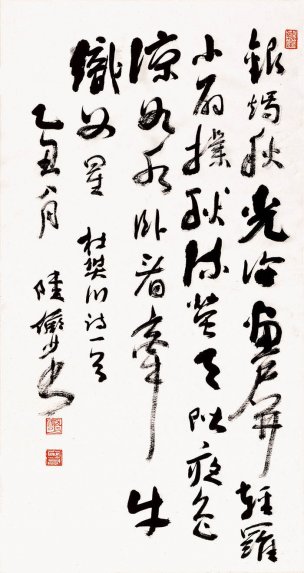 銀燭秋光冷畫屏輕羅
小扇撲流螢天階夜色
涼如水臥看牽牛
織女星 杜樊川詩一首
乙丑八月 陸儼少書